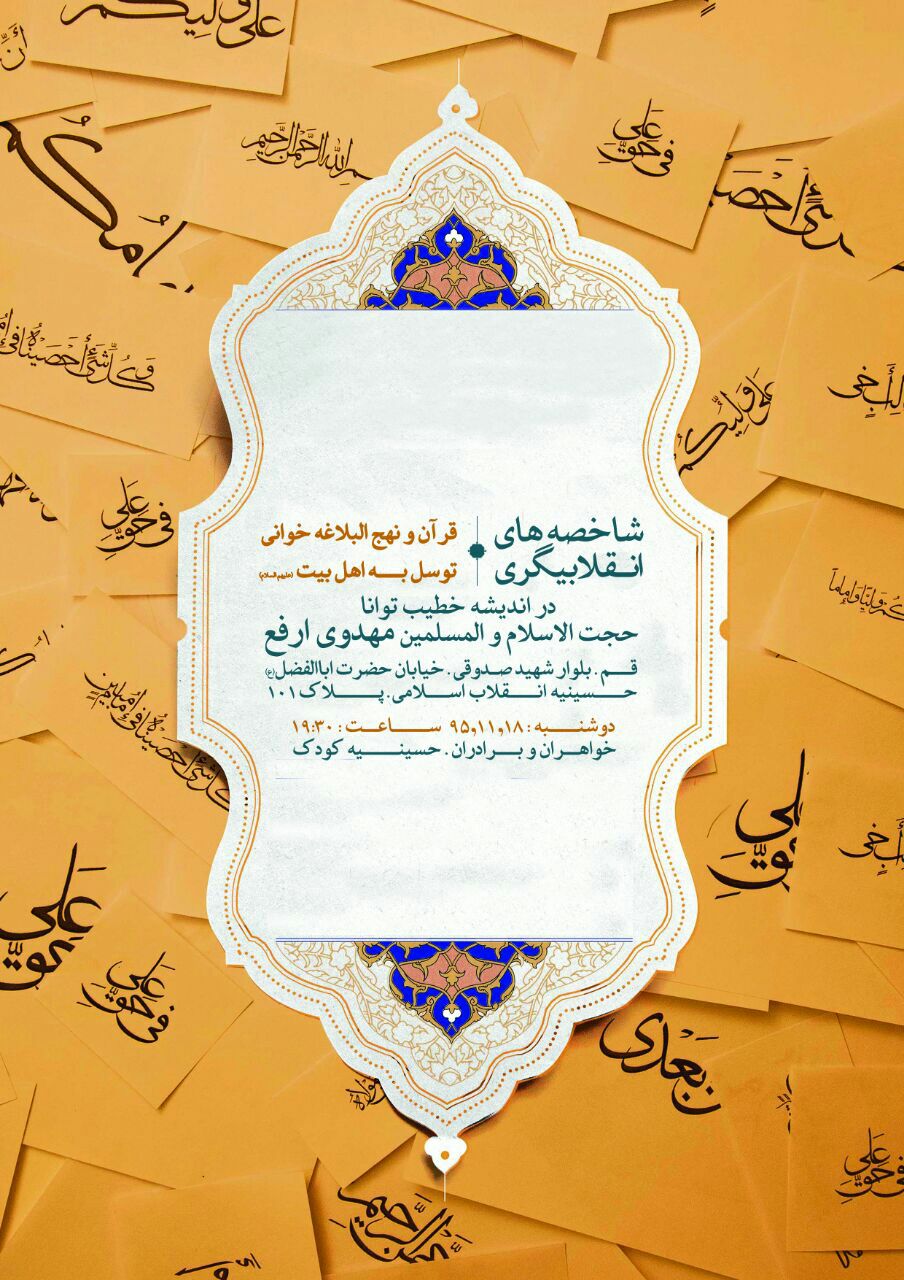 علی ولیکم
بسم الله الرحمن الرحیم
فی حق علی
وَكُلَّ شَيْءٍ أَحْصَيْنَاهُ فِي
علی ولیکم
فی حق علی
شاخصه های
انقلابیگری
قرآن و نهج البلاغه خوانی
توسل به اهل بیت (علیهم السلام)
در اندیشه خطیب توانا
حجت الاسلام و المسلمین مهدوی ارفع
قم . بلوار شهید صدوقی . خیابان حضرت اباالفضل(ع)
حسینیه انقلاب اسلامی. پلاک ۱۰۱
دوشنبه : ۹۵٫۱۱٫۱۸ ساعت : ۱۹:۳۰
خواهران و برادران . حسینیه کودک
فی حق علی
بعدی
فی حق علی